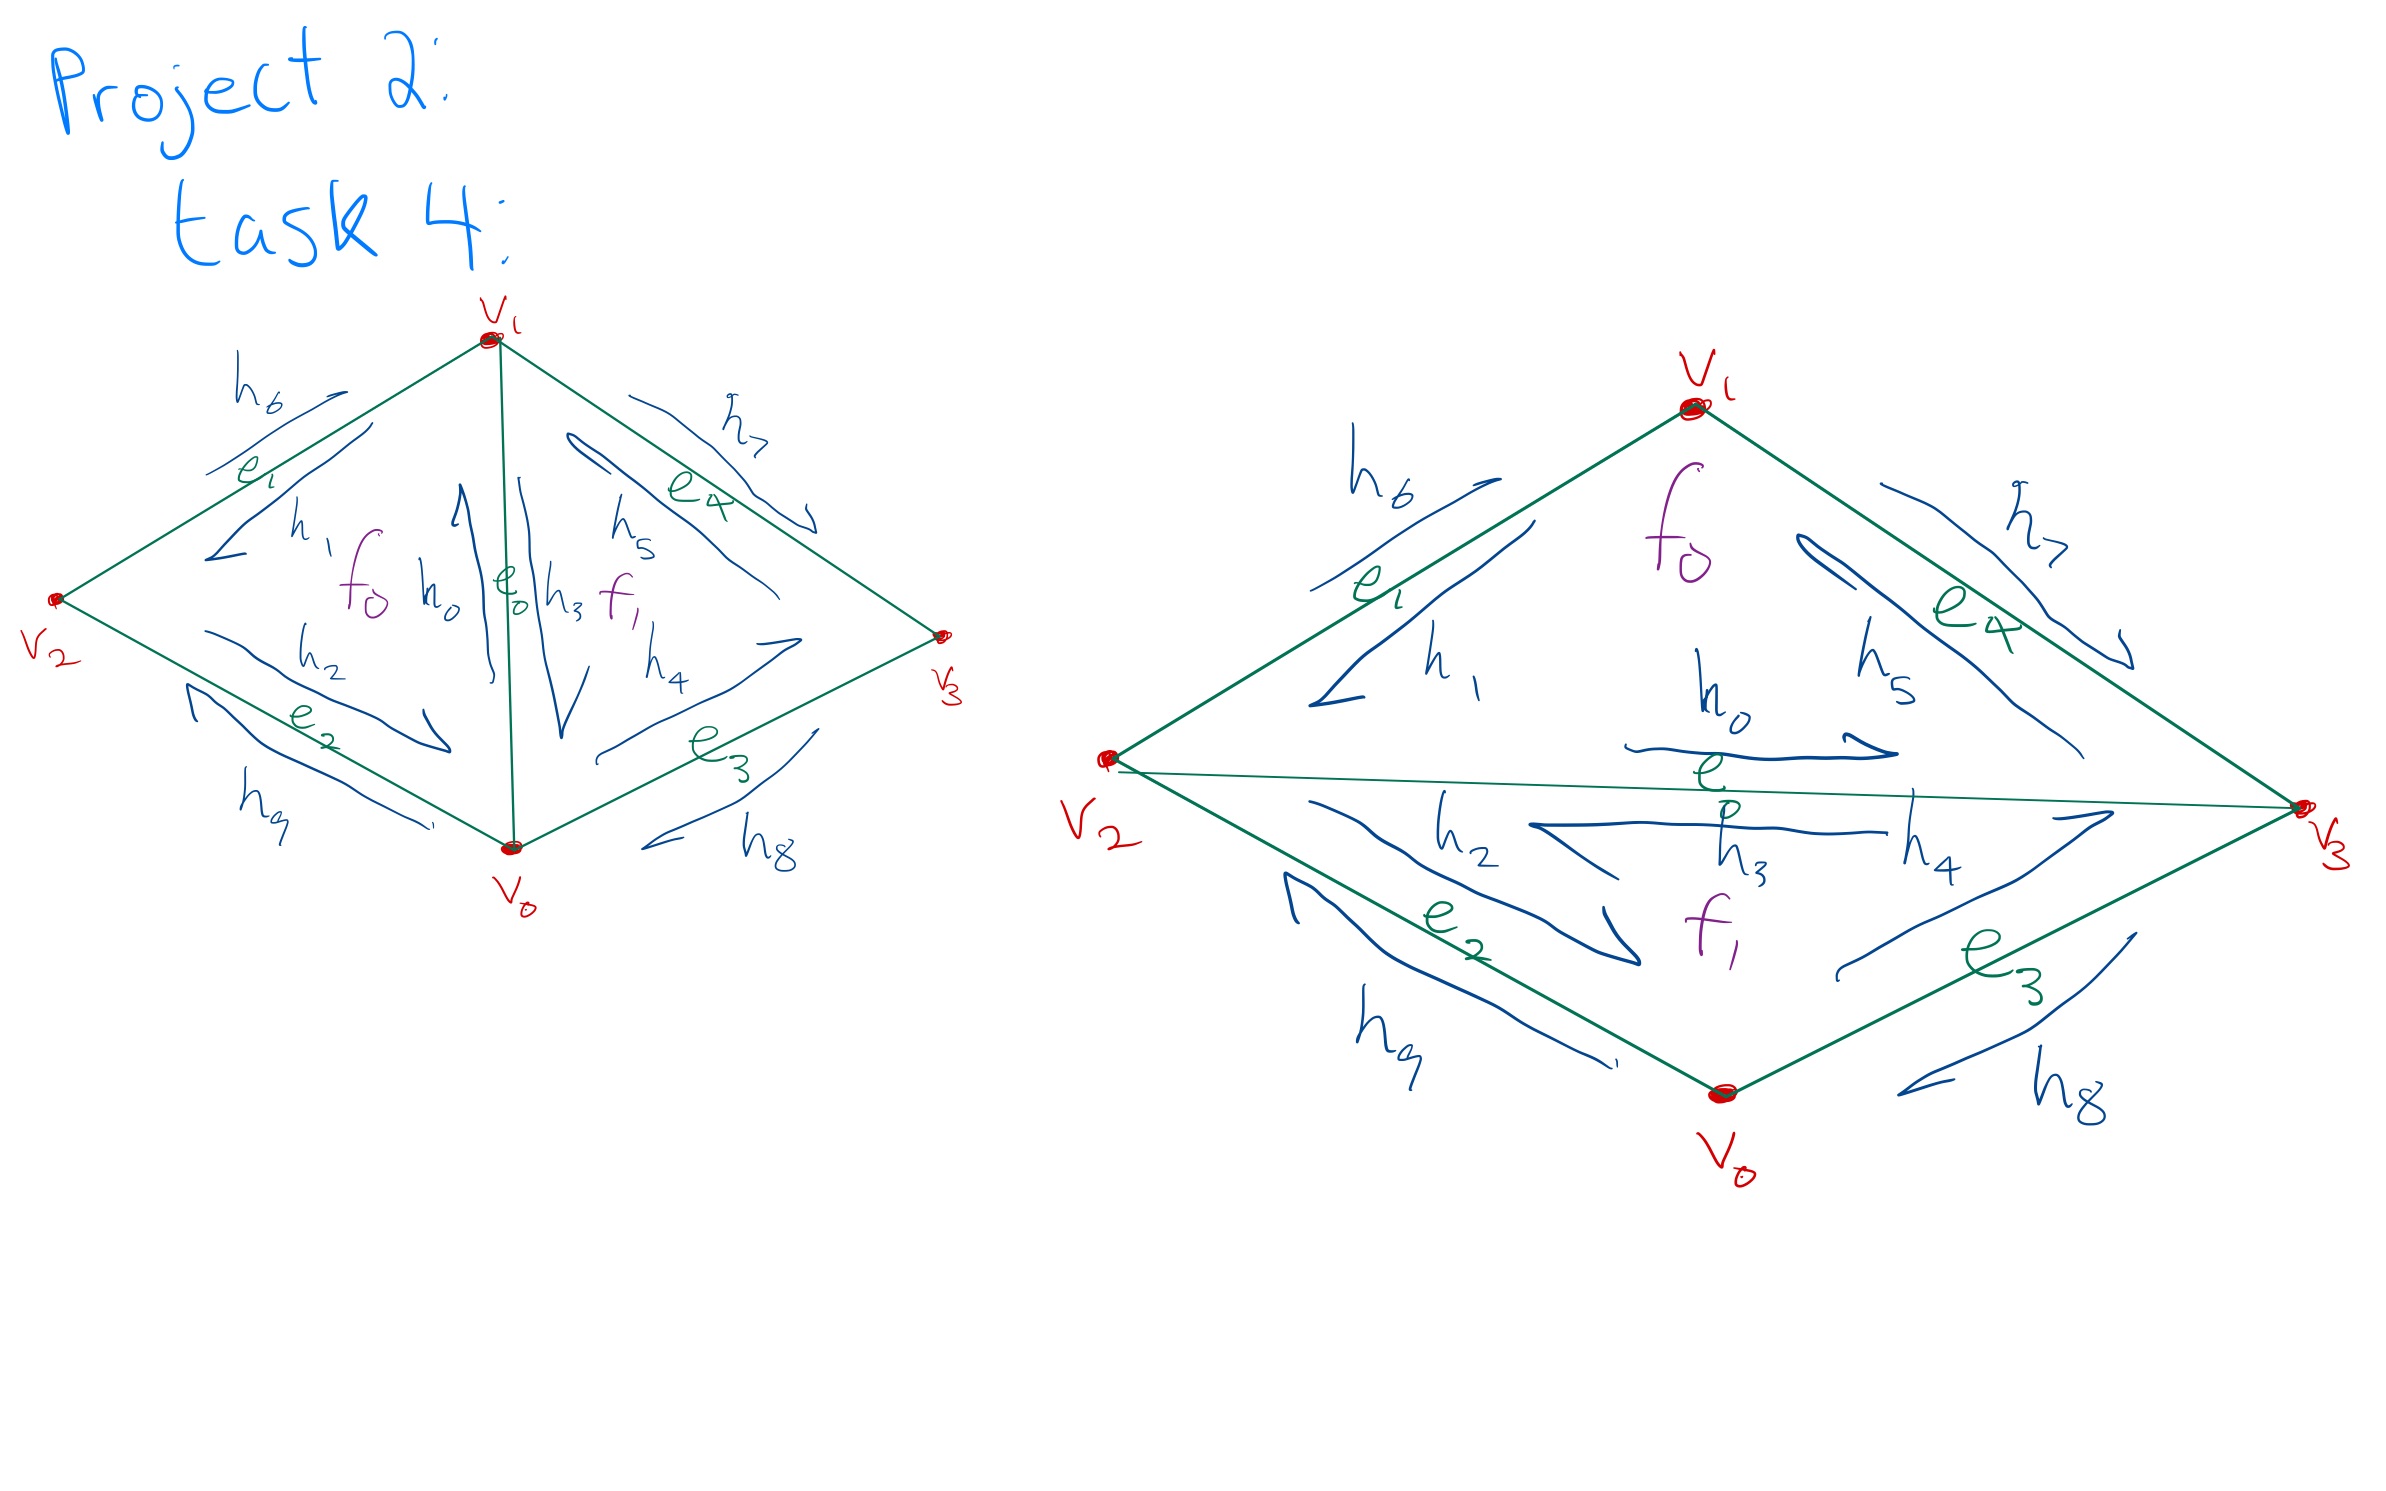 Project 2:
task 4:
v1
h6
h7
e1
e4
h1
h5
f0
h0
e0
h3
f1
v2
h2
h4
v3
e2
e3
h9
h8
v0
v1
h6
f0
h7
e1
e4
h1
h5
h0
v2
e0
h2
h3
h4
v3
e2
f1
e3
h9
h8
v0